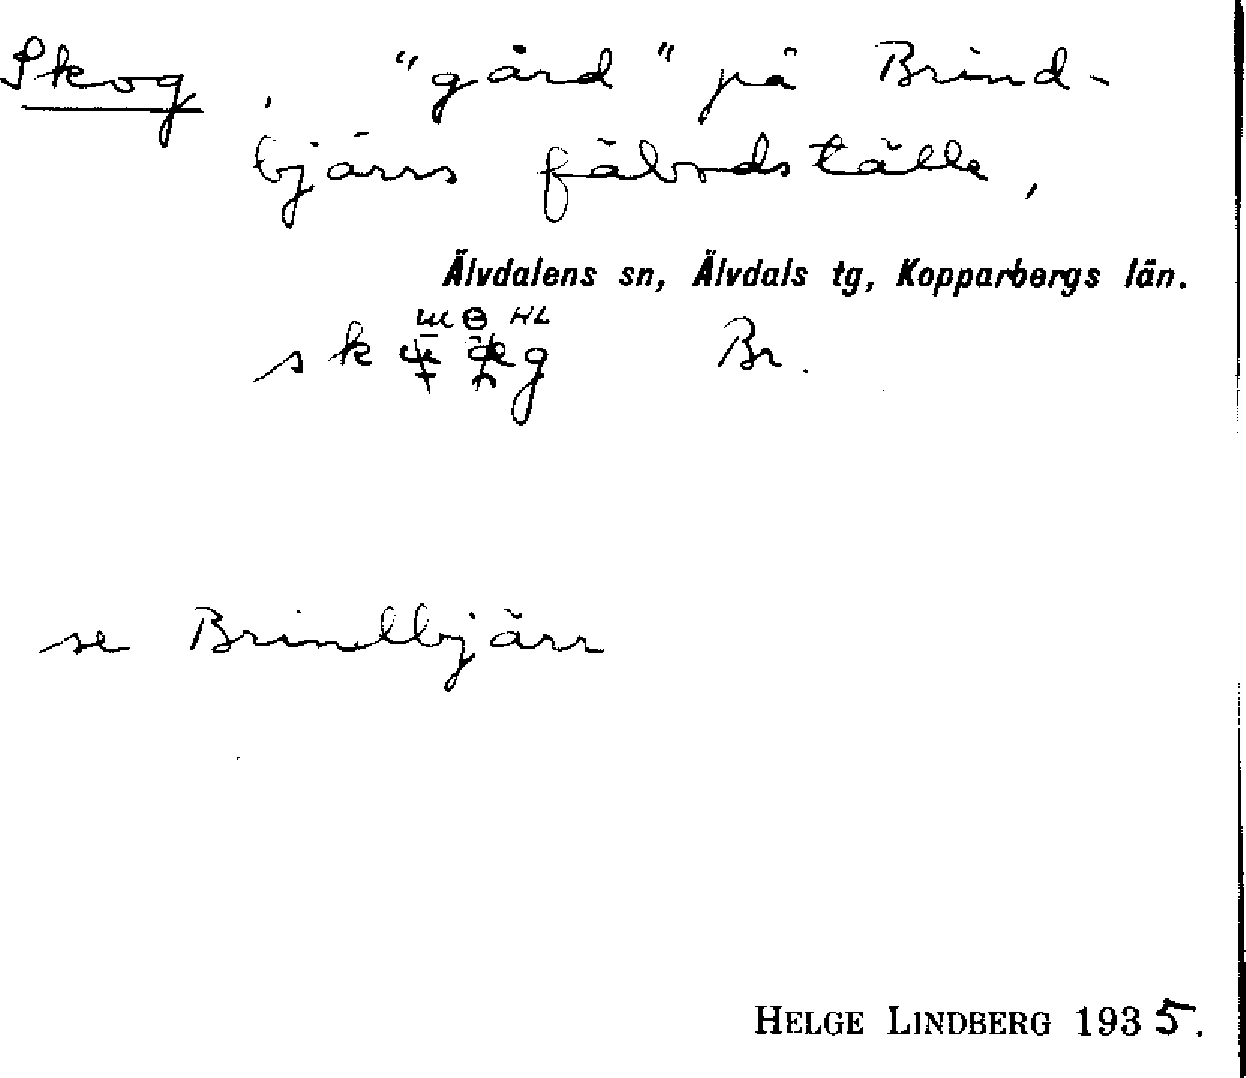 Skog, "gård" på Brind-
bjärrs fäbodställe,
Älvdalens sn, Älvdals tg, Kopparbergs län.
HL
Br.
se Brindbjärr
HELGE LINDBERG 1935.